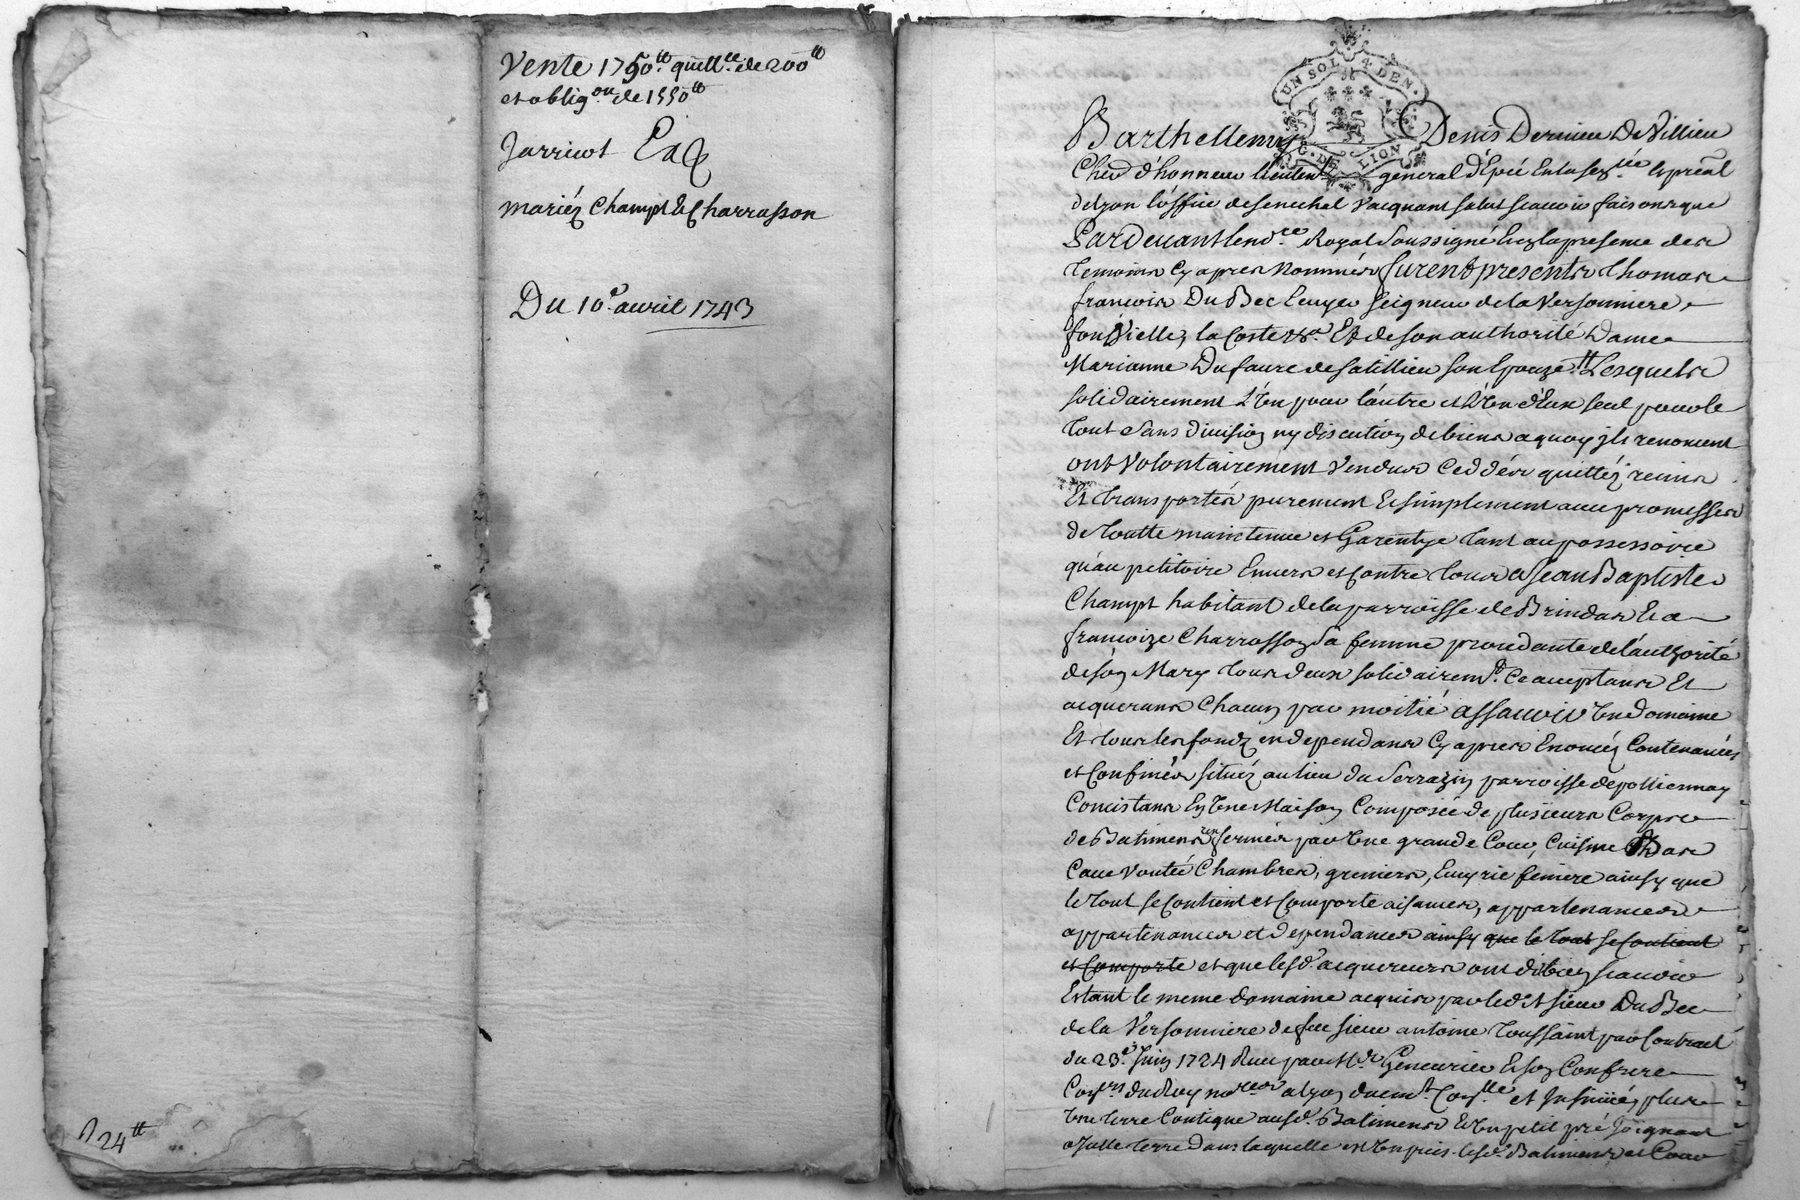 Vente 1750.tt quitt.ce de 200tt
et oblig.on de 1550tt
Jarricot Exp
mariéz Champt & Charrasson
Du 10e. avril 1743
24tt
UN SOL 4 DEN.
G. DE LION
Barthellemy Denis Dernieu De Villieu
Cher d'honneur lieuten.t general d'Epée En la sen.ée & presal
de Lyon l'office de senechal vacquant salut scavoir faisons que
Pardevant le no.re Royal Soussigné En la presence des
temoins Cy apres Nommés furent presents Thomas
francois Du Bec Ecuyer seigneur de la Versonniere
fonvielle, la Coste &a. Et de son authorité Dame
Marianne Dufaure de Satillieu son Epouze. Lesquels
solidairement L'Un pour l'autre et L'Un d'Eux seul pour le
tout Sans division ny discution de biens a quoy ils renoncent
ont volontairement Vendus Ceddés quittéz remis
Et transportés purement Et simplement avec promesses
de toutte maintenue et Garentye tant au possessoire
qu'au petitoire Envers et Contre tous a Jean Baptiste
Champt habitant de la parroisse de Brindas Et a
francoize Charrasson Sa femme procedante de l'authorité
de son Mary tous deux solidairem.t Ce acceptans Et
acquerans Chacun par moitié assavoir Un domaine
Et tous les fondz en dependans Cy apres Enoncéz Contenancés
et Confinés situéz au lieu du Serrazin parroisse de pollionnay
Concistans En Une Maison Composée de plusieurs Corps
de Batimens renfermés par Une grande Cour, Cuisine Bas
Cave voutée Chambres, greniers, Ecuyrie feniere ainsy que
le tout se Contient et Comporte aisances, appartenances
appartenances et dependances ainsy que le tout se Contient
et Comporte et que lesd. acquereurs ont dit bien scavoir
Estant le meme domaine acquis par led.t sieur Du Bec
de la Versonniere de feu sieur antoine Toussaint par Contract
du 23e. Juin 1724 Receu par M.e Genevrier & son Confrere
Con.ers du Roy no.res a Lyon duem.t Con.llé et Insinué, plus
Une terre Contigue ausd. Batimens Et Un petit pré Joignant
a latte terre dans laquelle est Un puis lesd. Batimens et Cour